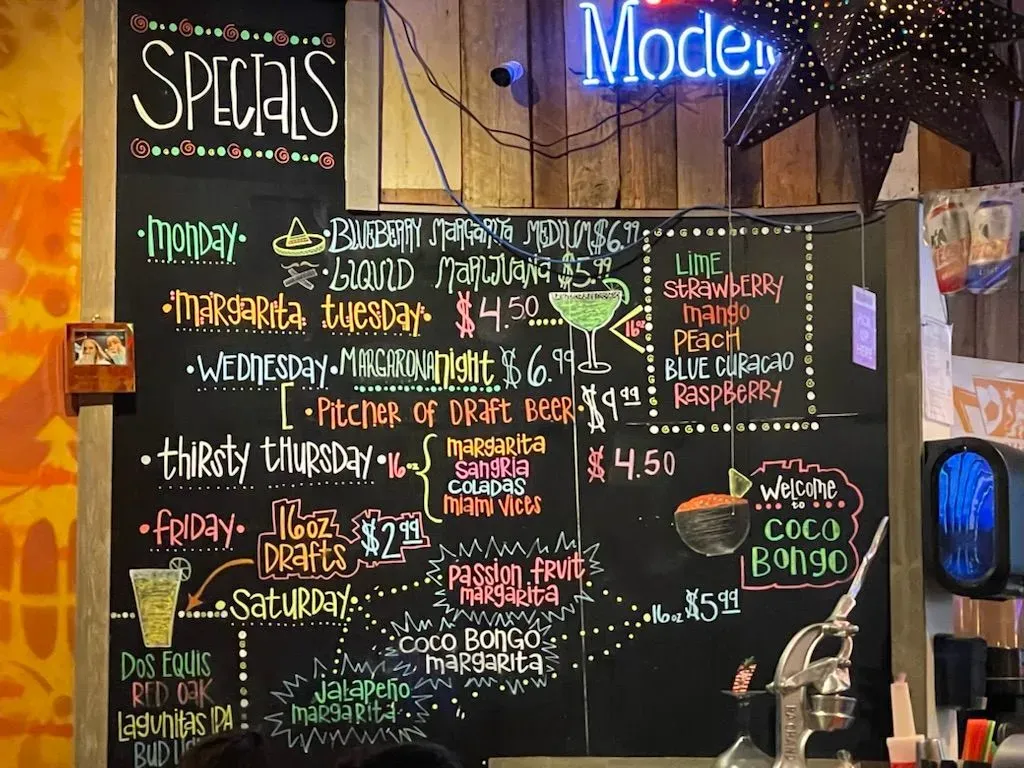 SPECIALS
Model
MONDAY
BLUEBERRY MARGARITA MEDIUM $6.99
LIQUID MARIJUANA $5.99
MARGARITA TUESDAY $4.50
16oz
LIME
STRAWBERRY
MANGO
PEACH
BLUE CURACAO
RASPBERRY
WEDNESDAY MARGARONA NIGHT $6.99
PITCHER OF DRAFT BEER $9.99
THIRSTY THURSDAY 16oz
MARGARITA
SANGRIA
COLADAS
MIAMI VICES
$4.50
FRIDAY
16oz
DRAFTS
$2.99
SATURDAY
PASSION FRUIT
MARGARITA
COCO BONGO
MARGARITA
JALAPEÑO
MARGARITA
16oz $5.99
WELCOME
to
COCO
BONGO
DOS EQUIS
RED OAK
LAGUNITAS IPA
BUD
PICK
UP
HERE